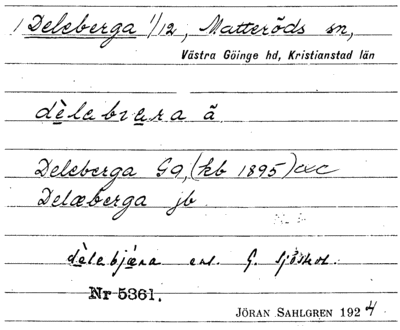 1 Deleberga 1/12, Matteröds sn,
Västra Göinge hd, Kristianstad län
dèlebræra ã
Deleberga G9, (kb 1895)
Delæberga jb
dèlebjæra enl. G. Sjöstedt
Nr 5361.
JÖRAN SAHLGREN 1924